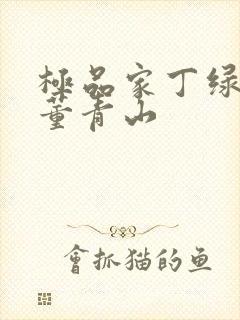 極品家丁绿
董青山
會抓猫的鱼